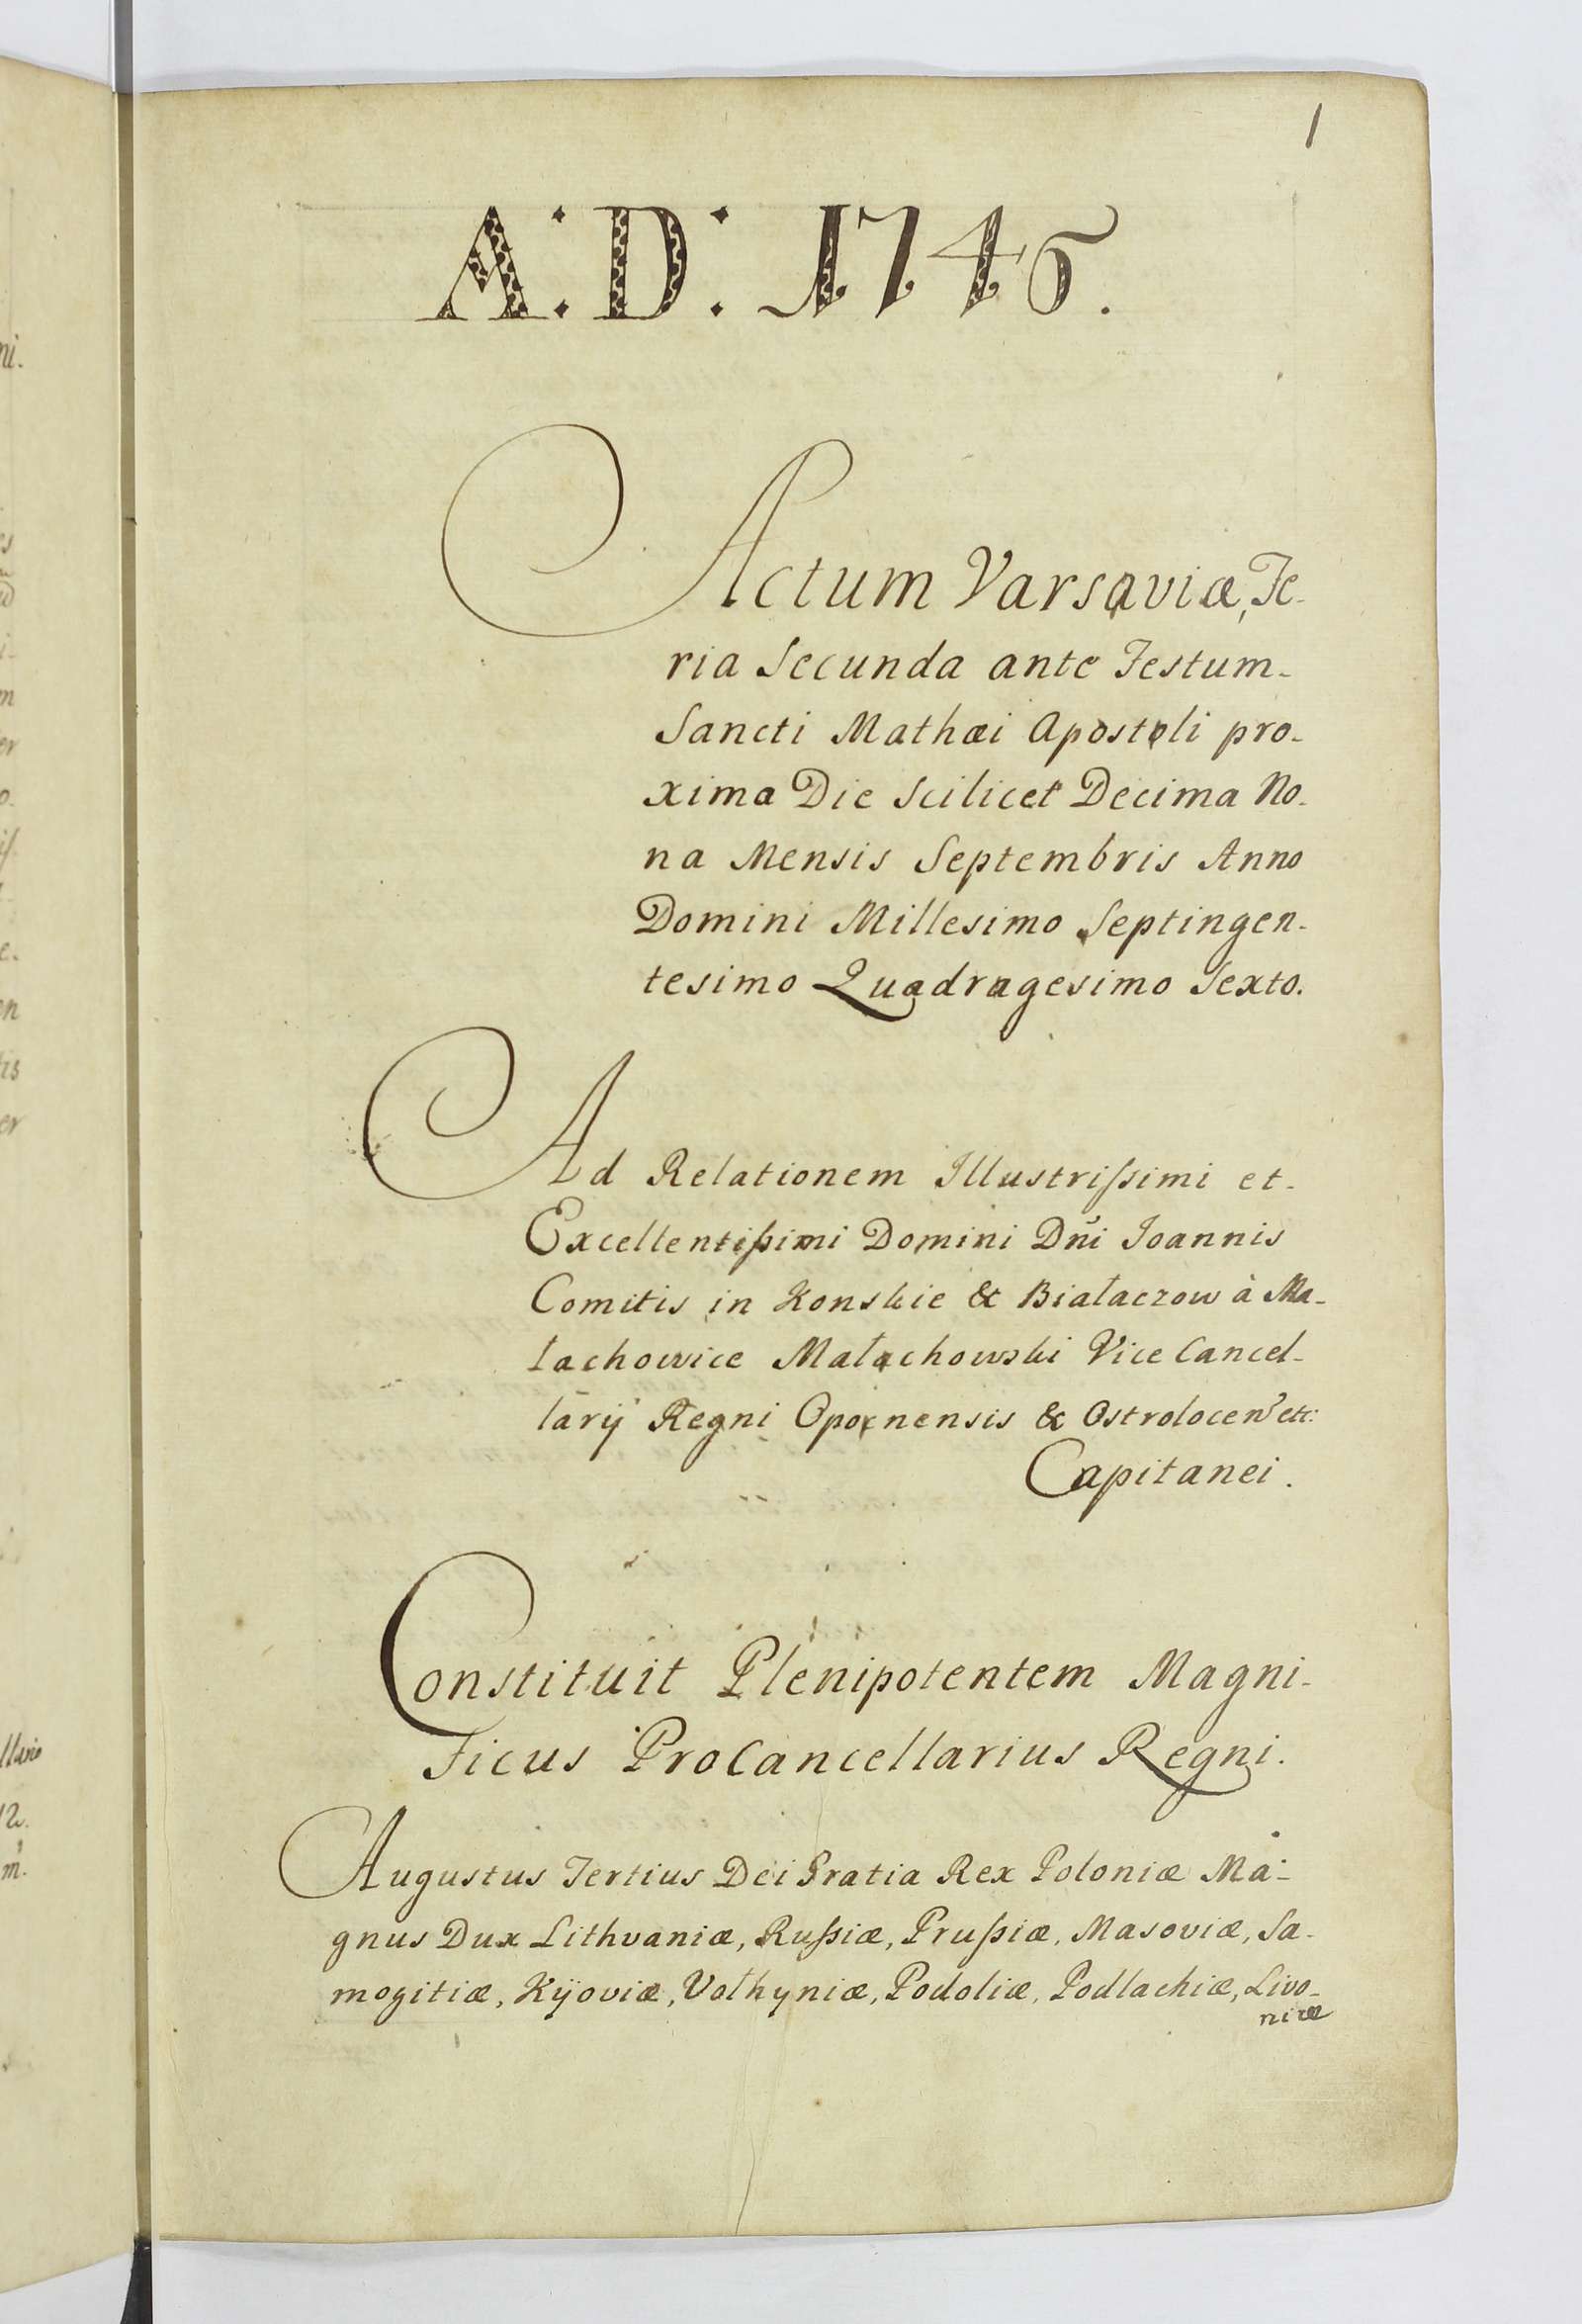 1
A: D: 1746.
Actum Varsaviæ, Fe-
ria Secunda ante Festum
Sancti Mathæi Apostoli pro-
xima Die Scilicet Decima No-
na Mensis Septembris Anno
Domini Millesimo Septingen-
tesimo Quadragesimo Sexto.
Ad Relationem Illustrissimi et
Excellentissimi Domini Dñi Ioannis
Comitis in Konskie & Białaczow à Ma-
łachowice Małachowski Vice Cancel-
larij Regni Opocnensis & Ostrolocen' etc:
Capitanei.
Constituit Plenipotentem Magni-
ficus ProCancellarius Regni.
Augustus Tertius Dei Gratia Rex Poloniæ Ma-
gnus Dux Lithvaniæ, Russiæ, Prussiæ, Masoviæ, Sa-
mogitiæ, Kijoviæ, Volhyniæ, Podoliæ, Podlachiæ, Livo-
niæ